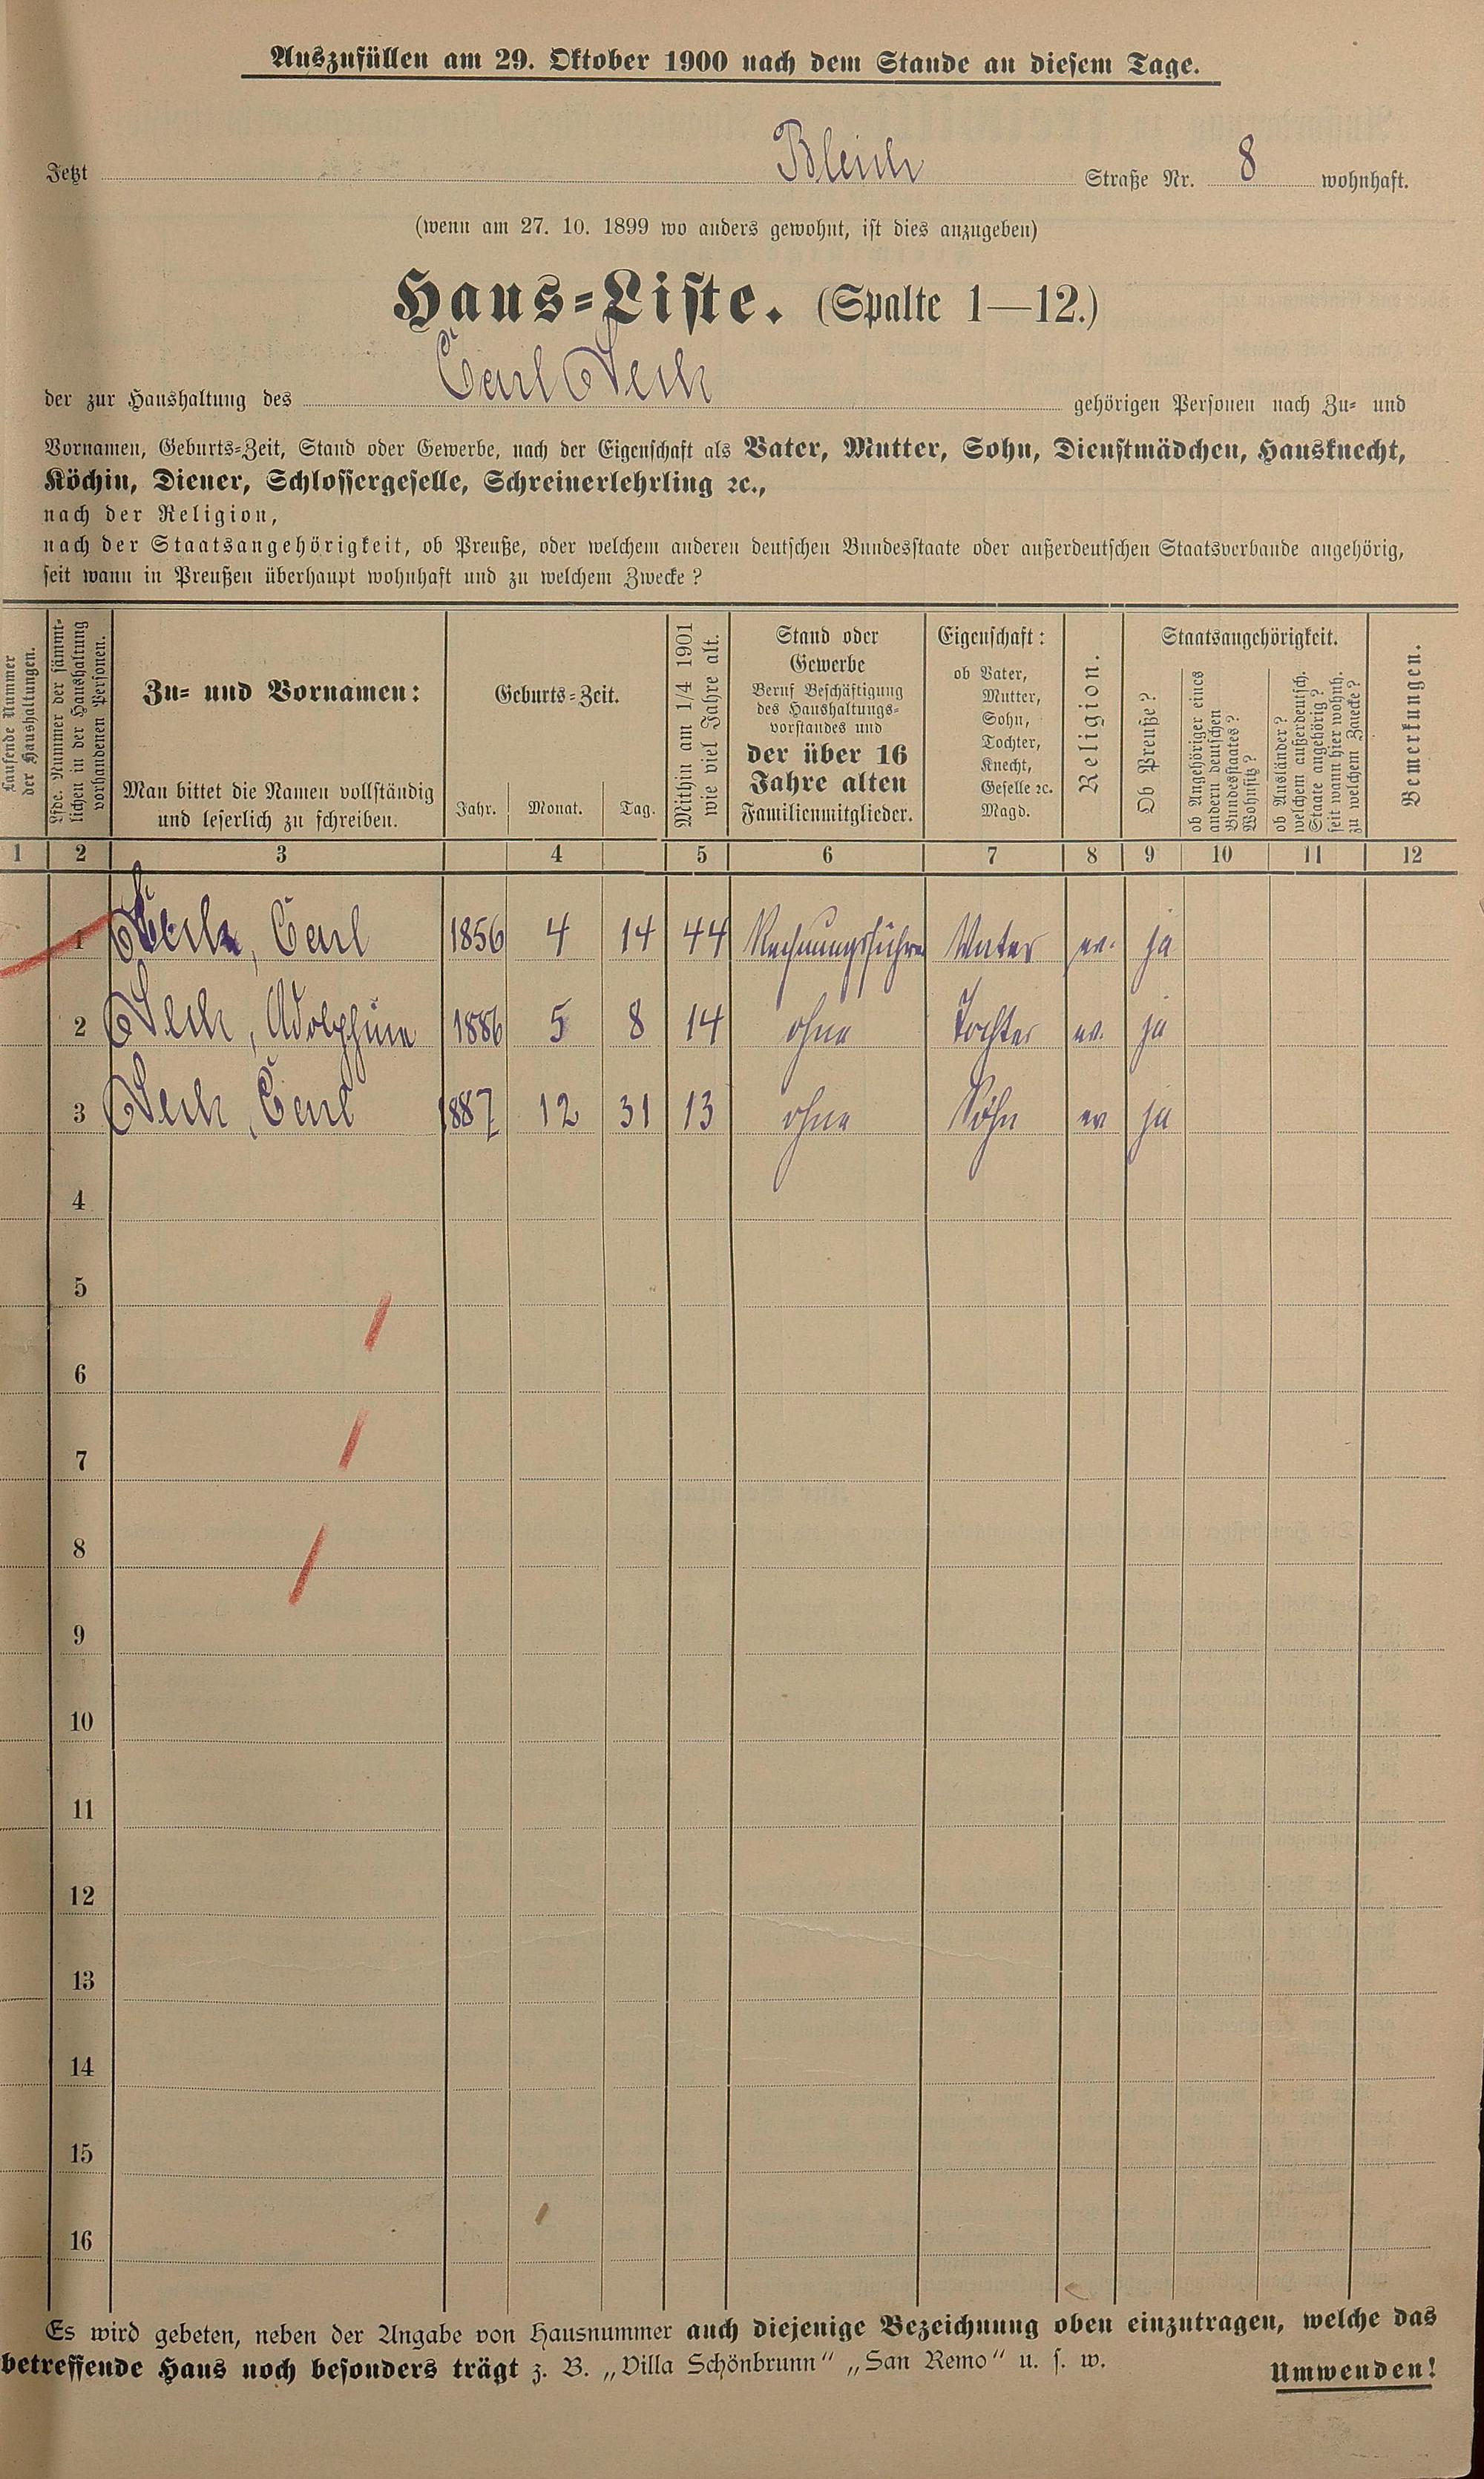 Auszufüllen am 29. Oktober 1900 nach dem Stande an diesem Tage.
Jetzt Bleich Straße Nr. 8 wohnhaft.
(wenn am 27. 10. 1899 wo anders gewohnt, ist dies anzugeben)
Haus=Liste. (Spalte 1—12.)
der zur Haushaltung des Carl gehörigen Personen nach Zu= und
Vornamen, Geburts=Zeit, Stand oder Gewerbe, nach der Eigenschaft als Vater, Mutter, Sohn, Dienstmädchen, Hausknecht,
Köchin, Diener, Schlossergeselle, Schreinerlehrling ꝛc.,
nach der Religion,
nach der Staatsangehörigkeit, ob Preuße, oder welchem anderen deutschen Bundesstaate oder außerdeutschen Staatsverbande angehörig,
seit wann in Preußen überhaupt wohnhaft und zu welchem Zwecke?
Laufende Nummer
der Haushaltungen.
Lfde. Nummer der sämmt=
lichen in der Haushaltung
vorhandenen Personen.
Zu= und Vornamen:
Man bittet die Namen vollständig
und leserlich zu schreiben.
Geburts=Zeit.
Jahr. Monat. Tag.
Mithin am 1/4 1901
wie viel Jahre alt.
Stand oder
Gewerbe
Beruf Beschäftigung
des Haushaltungs=
vorstandes und
der über 16
Jahre alten
Familienmitglieder.
Eigenschaft:
ob Vater,
Mutter,
Sohn,
Tochter,
Knecht,
Geselle ꝛc.
Magd.
Religion.
Staatsangehörigkeit.
Ob Preuße?
ob Angehöriger eines
andern deutschen
Bundesstaates?
Wohnsitz?
ob Ausländer?
welchem außerdeutsch.
Staate angehörig?
seit wann hier wohnh.
zu welchem Zwecke?
Bemerkungen.
1 2 3 4 5 6 7 8 9 10 11 12
1 Carl 1856 4 14 44 Rechnungsführer Vater ev. ja
2 Adolphine 1886 5 8 14 ohne Tochter ev. ja
3 Carl 1887 12 31 13 ohne Sohn ev ja
4
5
6
7
8
9
10
11
12
13
14
15
16
Es wird gebeten, neben der Angabe von Hausnummer auch diejenige Bezeichnung oben einzutragen, welche das
betreffende Haus noch besonders trägt z. B. „Villa Schönbrunn“ „San Remo“ u. s. w.
Umwenden!